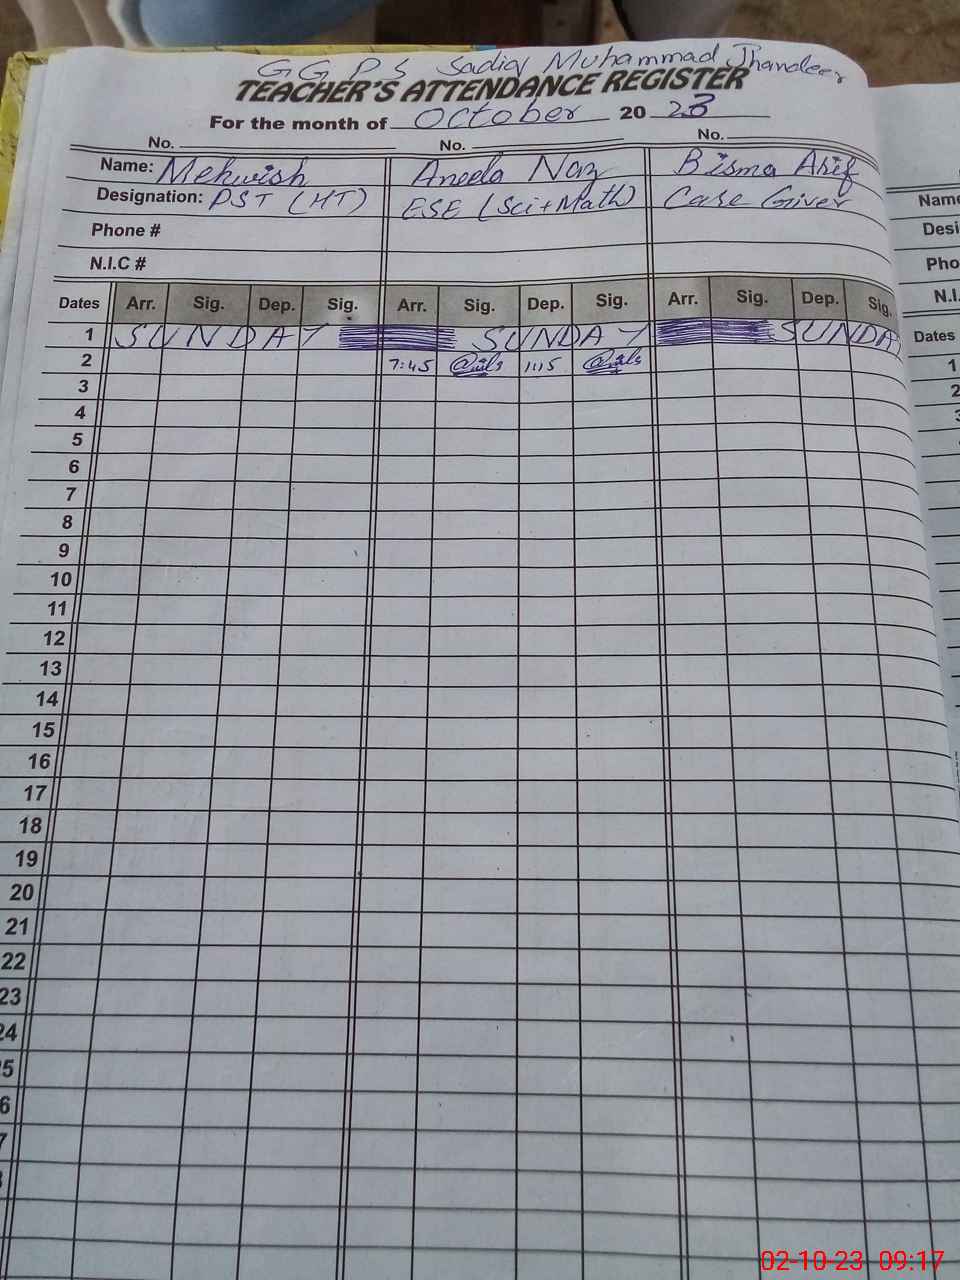 GGPS Sadiq Muhammad Jhandeer
TEACHER'S ATTENDANCE REGISTER
For the month of October 20 23
No. No. No.
Name: Mehwish Aneela Naz Bisma Arif
Designation: PST (HT) ESE (Sci+Math) Care Giver
Phone #
N.I.C #
Dates Arr. Sig. Dep. Sig. Arr. Sig. Dep. Sig. Arr. Sig. Dep. Sig.
1 SUNDAY SUNDAY SUNDA
2 7:45 1:15
3
4
5
6
7
8
9
10
11
12
13
14
15
16
17
18
19
20
21
22
23
24
25
6
7
Name
Desi
Pho
N.I.
Dates
1
2
3
02-10-23 09:17